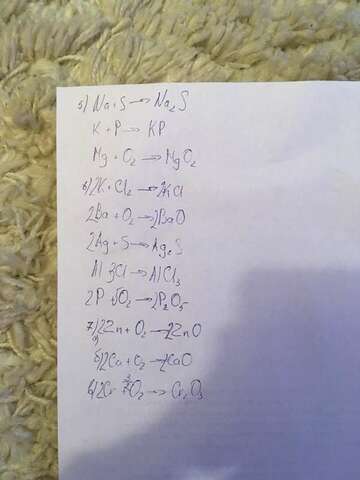 5) Na+S→Na₂S
K+P→KP
Mg+O₂→MgO₂
6) 2K+Cl₂→2KCl
2Ba+O₂→2BaO
2Ag+S→Ag₂S
Al 3Cl→AlCl₃
2P 5O₂→2P₂O₅
7) a) 2Zn+O₂→2ZnO
б) 2Ca+O₂→2CaO
в) 2Cr O₂→Cr₂O₃